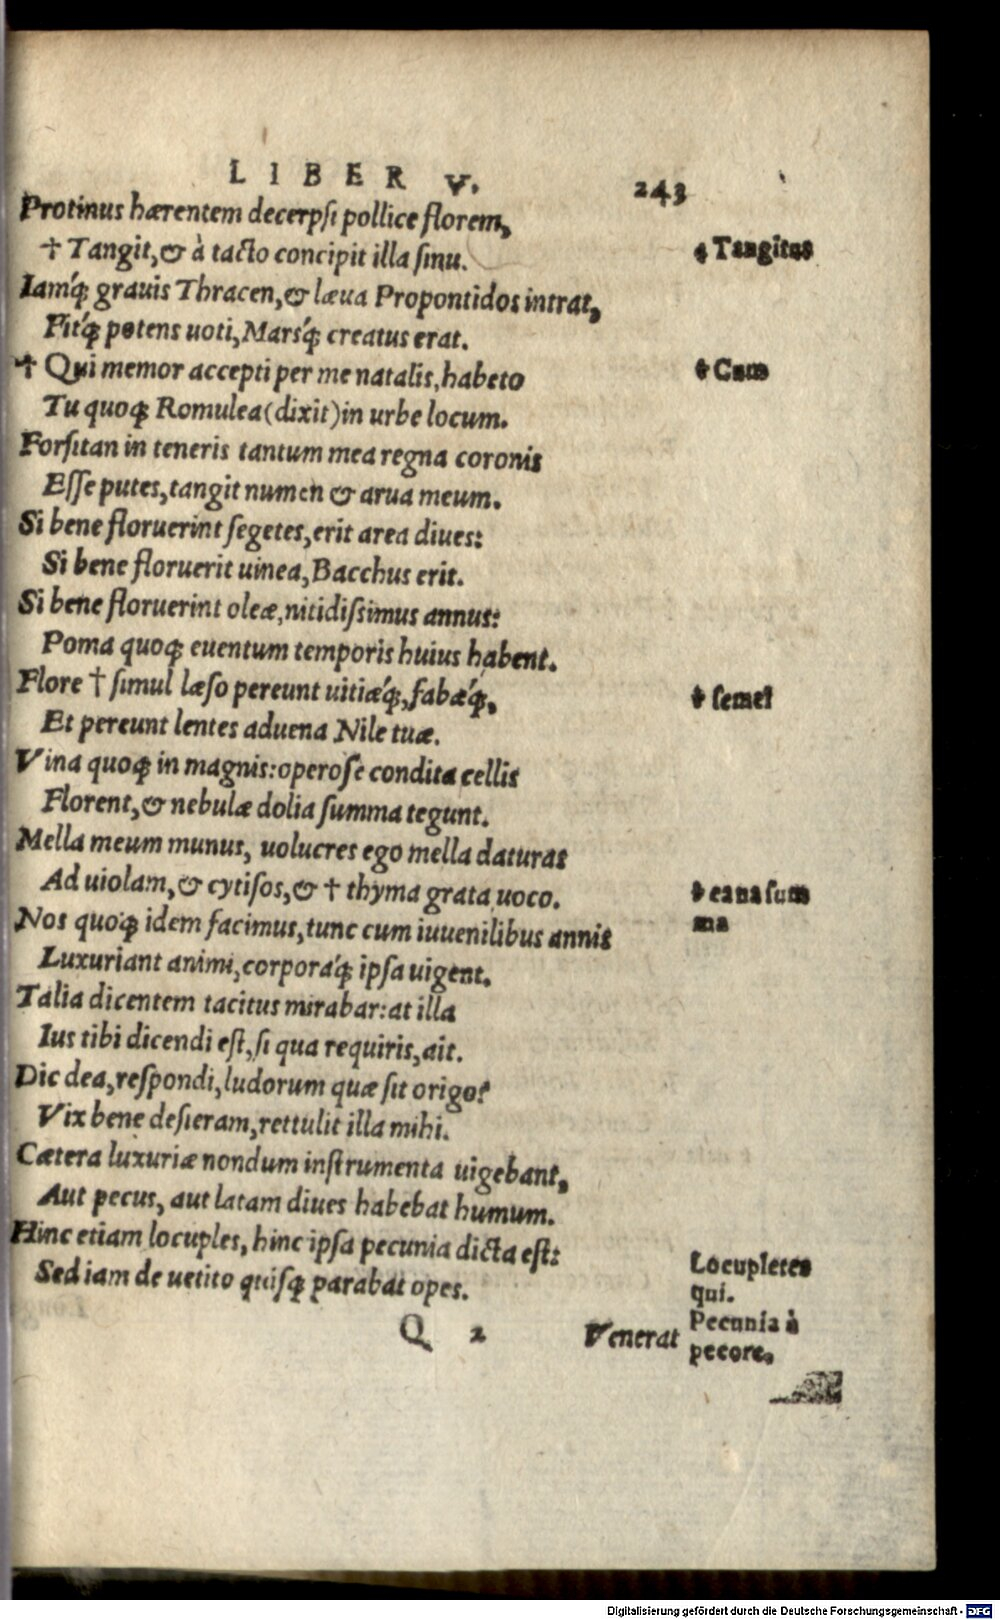 LIBER V. 243
Protinus hærentem decerpsi pollice florem,
† Tangit, & à tacto concipit illa sinu. † Tangitur
Iamq́ꝫ grauis Thracen, & læua Propontidos intrat,
Fitq́ꝫ potens uoti, Marsq́ꝫ creatus erat.
† Qui memor accepti per me natalis, habeto † Cum
Tu quoqꝫ Romulea (dixit) in urbe locum.
Forsitan in teneris tantum mea regna coronis
Esse putes, tangit numen & arua meum.
Si bene floruerint segetes, erit area diues:
Si bene floruerit uinea, Bacchus erit.
Si bene floruerint oleæ, nitidissimus annus:
Poma quoqꝫ euentum temporis huius habent.
Flore † simul læso pereunt uitiæq́ꝫ, fabæq́ꝫ, † semel
Et pereunt lentes aduena Nile tuæ.
Vina quoqꝫ in magnis: operose condita cellis
Florent, & nebulæ dolia summa tegunt.
Mella meum munus, uolucres ego mella daturas
Ad uiolam, & cytisos, & † thyma grata uoco. † cana sum
Nos quoqꝫ idem facimus, tunc cum iuuenilibus annis ma
Luxuriant animi, corporaq́ꝫ ipsa uigent.
Talia dicentem tacitus mirabar: at illa
Ius tibi dicendi est, si qua requiris, ait.
Dic dea, respondi, ludorum quæ sit origo?
Vix bene desieram, rettulit illa mihi.
Cætera luxuriæ nondum instrumenta uigebant,
Aut pecus, aut latam diues habebat humum.
Hinc etiam locuples, hinc ipsa pecunia dicta est: Locupletes
Sed iam de uetito quisqꝫ parabat opes. qui.
Pecunia à
pecore.
Q 2 Venerat
Digitalisierung gefördert durch die Deutsche Forschungsgemeinschaft - DFG